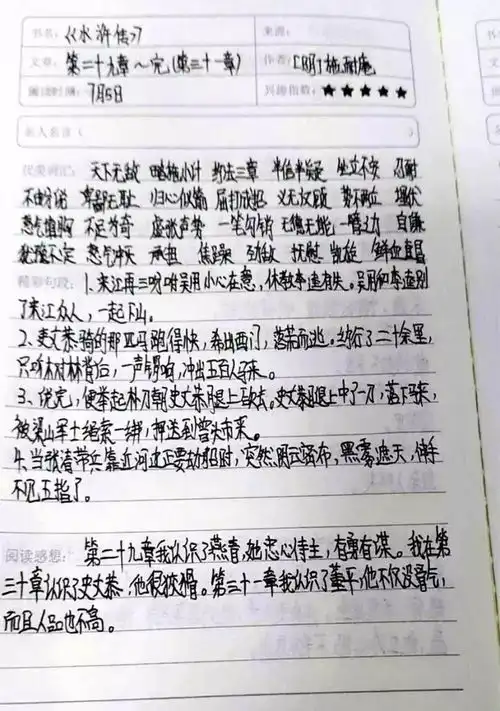 书名：《水浒传》 来源：
文章：第二十九章～完(第三十一章) 作者：[明]施耐庵
阅读时间：7月5日 兴趣指数：★★★★★
名人名言（ ）
优美词汇：天下无敌 略施小计 约法三章 半信半疑 坐立不安 忍耐
不由分说 卑鄙无耻 归心似箭 屈打成招 义无反顾 势不两立 埋伏
怒气填胸 不足为奇 虚张声势 一笔勾销 无德无能 一臂之力 自廉
犹豫不定 怒气冲天 承担 焦躁 劲敌 抚慰 凯旋 鲜血直冒
精彩句段：1、宋江再三吩咐吴用小心在意，休教李逵有失。吴用和李逵别
了宋江众人，一起下山。
2、史文恭骑的那匹马跑得快，杀出西门，落荒而逃。约行了二十余里，
只听林树林背后，一声锣响，冲出五百人马来。
3、说完，便举起朴刀朝史文恭腿上砍去。史文恭腿上中了一刀，落下马来，
被梁山军士绳索一绑，押送到曾头市来。
4、当张清带兵靠近河边正要劫船时，突然阴云密布，黑雾遮天，伸手
不见五指了。
阅读感想：第二十九章我认识了燕青，她忠心侍主，有勇有谋。我在第
三十章认识了史文恭，他很狡猾。第三十一章我认识了董平，他不仅没骨气，
而且人品也不高。